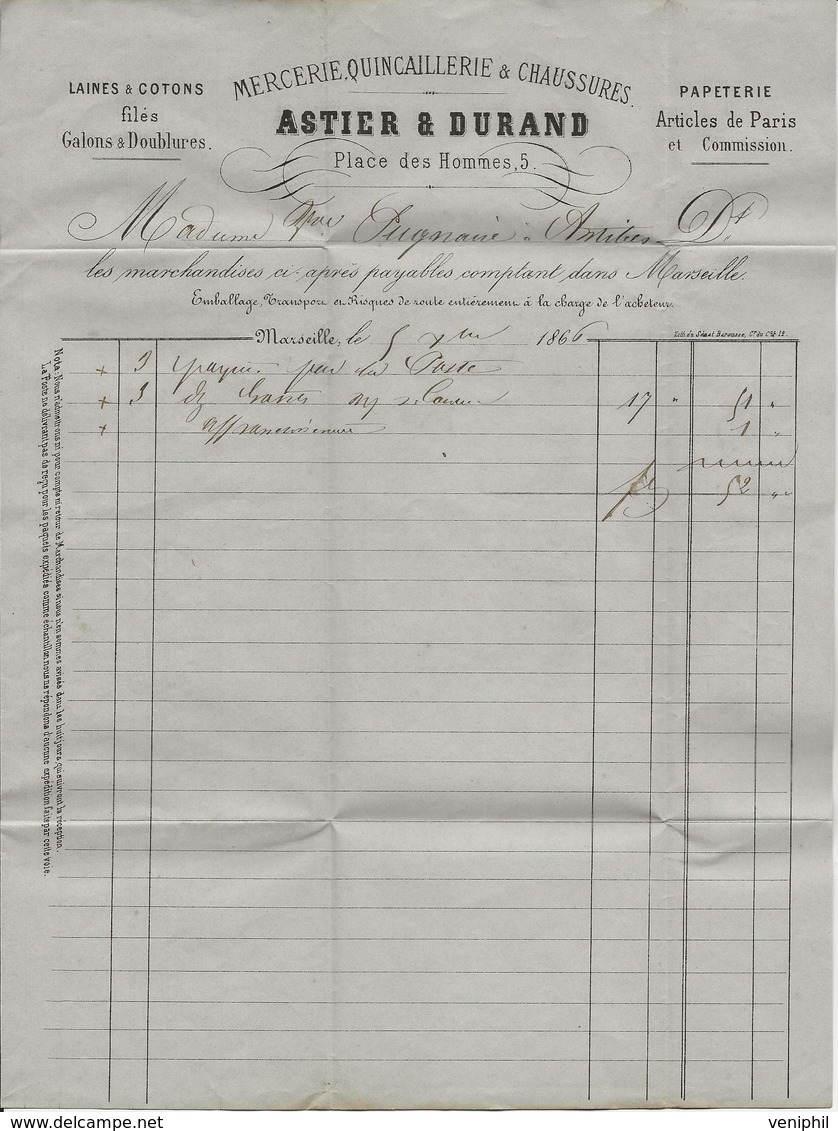 MERCERIE, QUINCAILLERIE & CHAUSSURES.
LAINES & COTONS
filés
Galons & Doublures.
ASTIER & DURAND
Place des Hommes, 5.
PAPETERIE
Articles de Paris
et Commission.
Madame Pugnaire à Antibes Dt
les marchandises ci-après payables comptant dans Marseille.
Emballage, Transport et Risques de route entièrement à la charge de l'acheteur.
Marseille, le 5 1866
3 par la Poste
+ 3 dz 17 " 51 "
+ affranchissement 1 "
52 "
Nota: Nous n'admettrons ni pour compte ni retour de Marchandises si nous n'en sommes avisés dans les huit jours, qui suivront la réception.
La Poste ne délivrant pas de reçu pour les paquets expédiés comme échantillon, nous ne répondons d'aucune expédition faite par cette voie.
veniphil